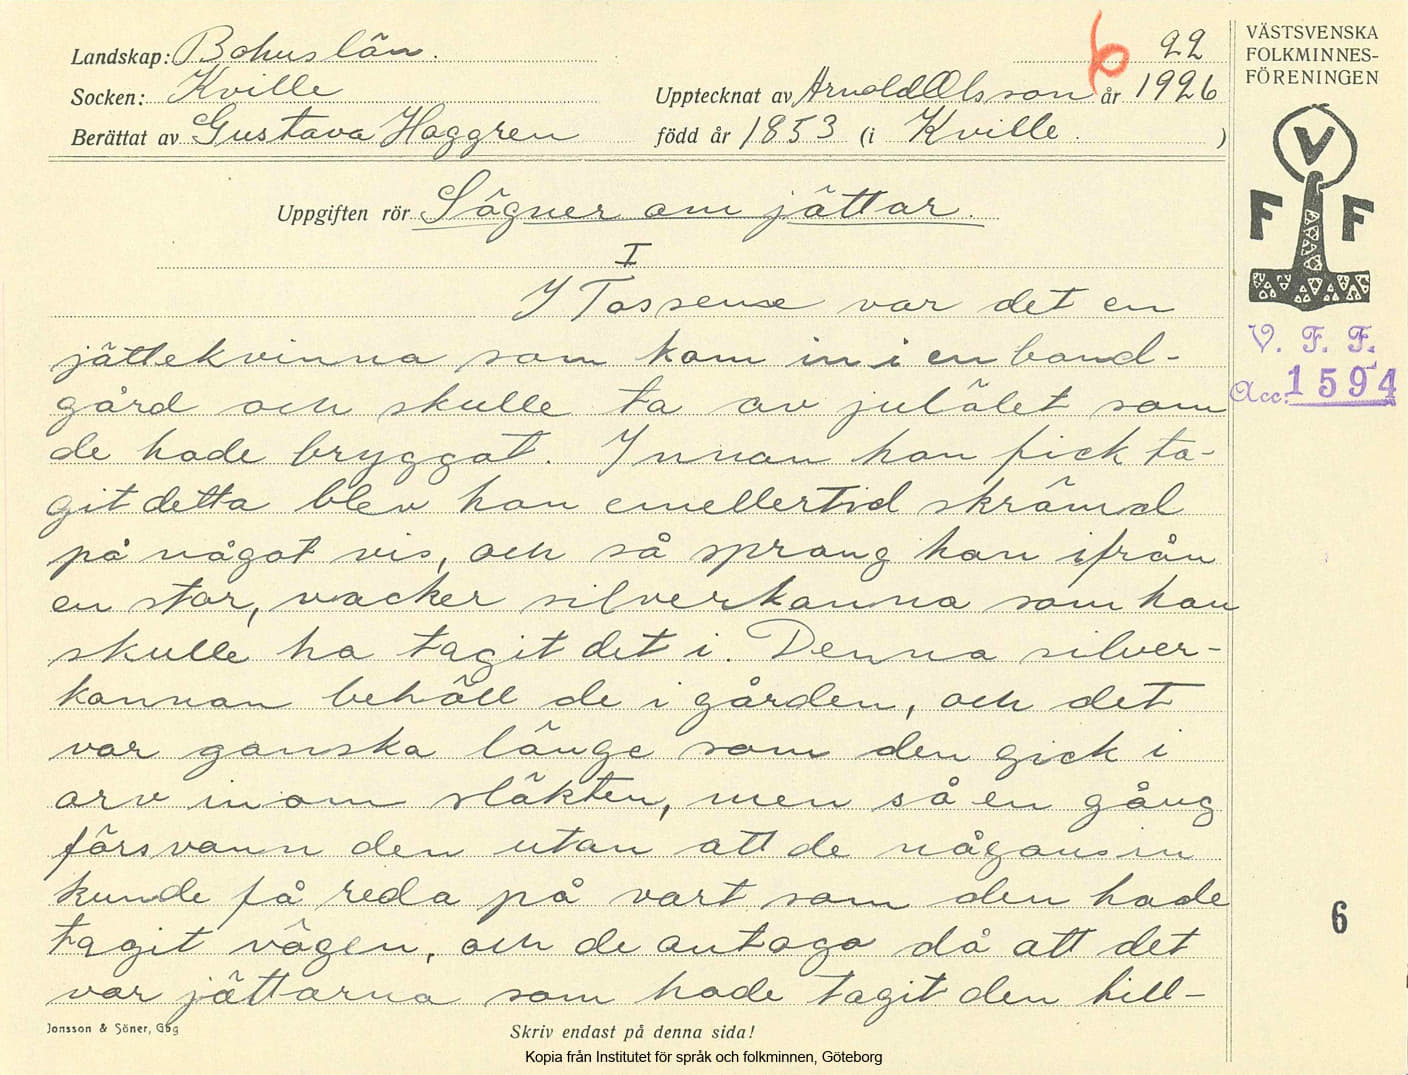 Landskap: Bohuslän.
6 22
Socken: Kville
Upptecknat av Arnold Olsson år 1926
Berättat av Gustava Haggren
född år 1853 (i Kville.)
VÄSTSVENSKA
FOLKMINNES-
FÖRENINGEN
V
F F
V. F. F.
Acc: 1594
Uppgiften rör Sägner om jättar.
I
I Tossene var det en
jättekvinna som kom in i en bond-
gård och skulle ta av julölet som
de hade bryggat. Innan hon fick ta-
git detta blev hon emellertid skrämd
på något vis, och så sprang hon ifrån
en stor, vacker silverkanna som hon
skulle ha tagit det i. Denna silver-
kannan behöll de i gården, och det
var ganska länge som den gick i
arv inom släkten, men så en gång
försvann den utan att de någonsin
kunde få reda på vart som den hade
tagit vägen, och de antaga då att det
var jättarna som hade tagit den till-
6
Jonsson & Söner, Gbg
Skriv endast på denna sida!
Kopia från Institutet för språk och folkminnen, Göteborg